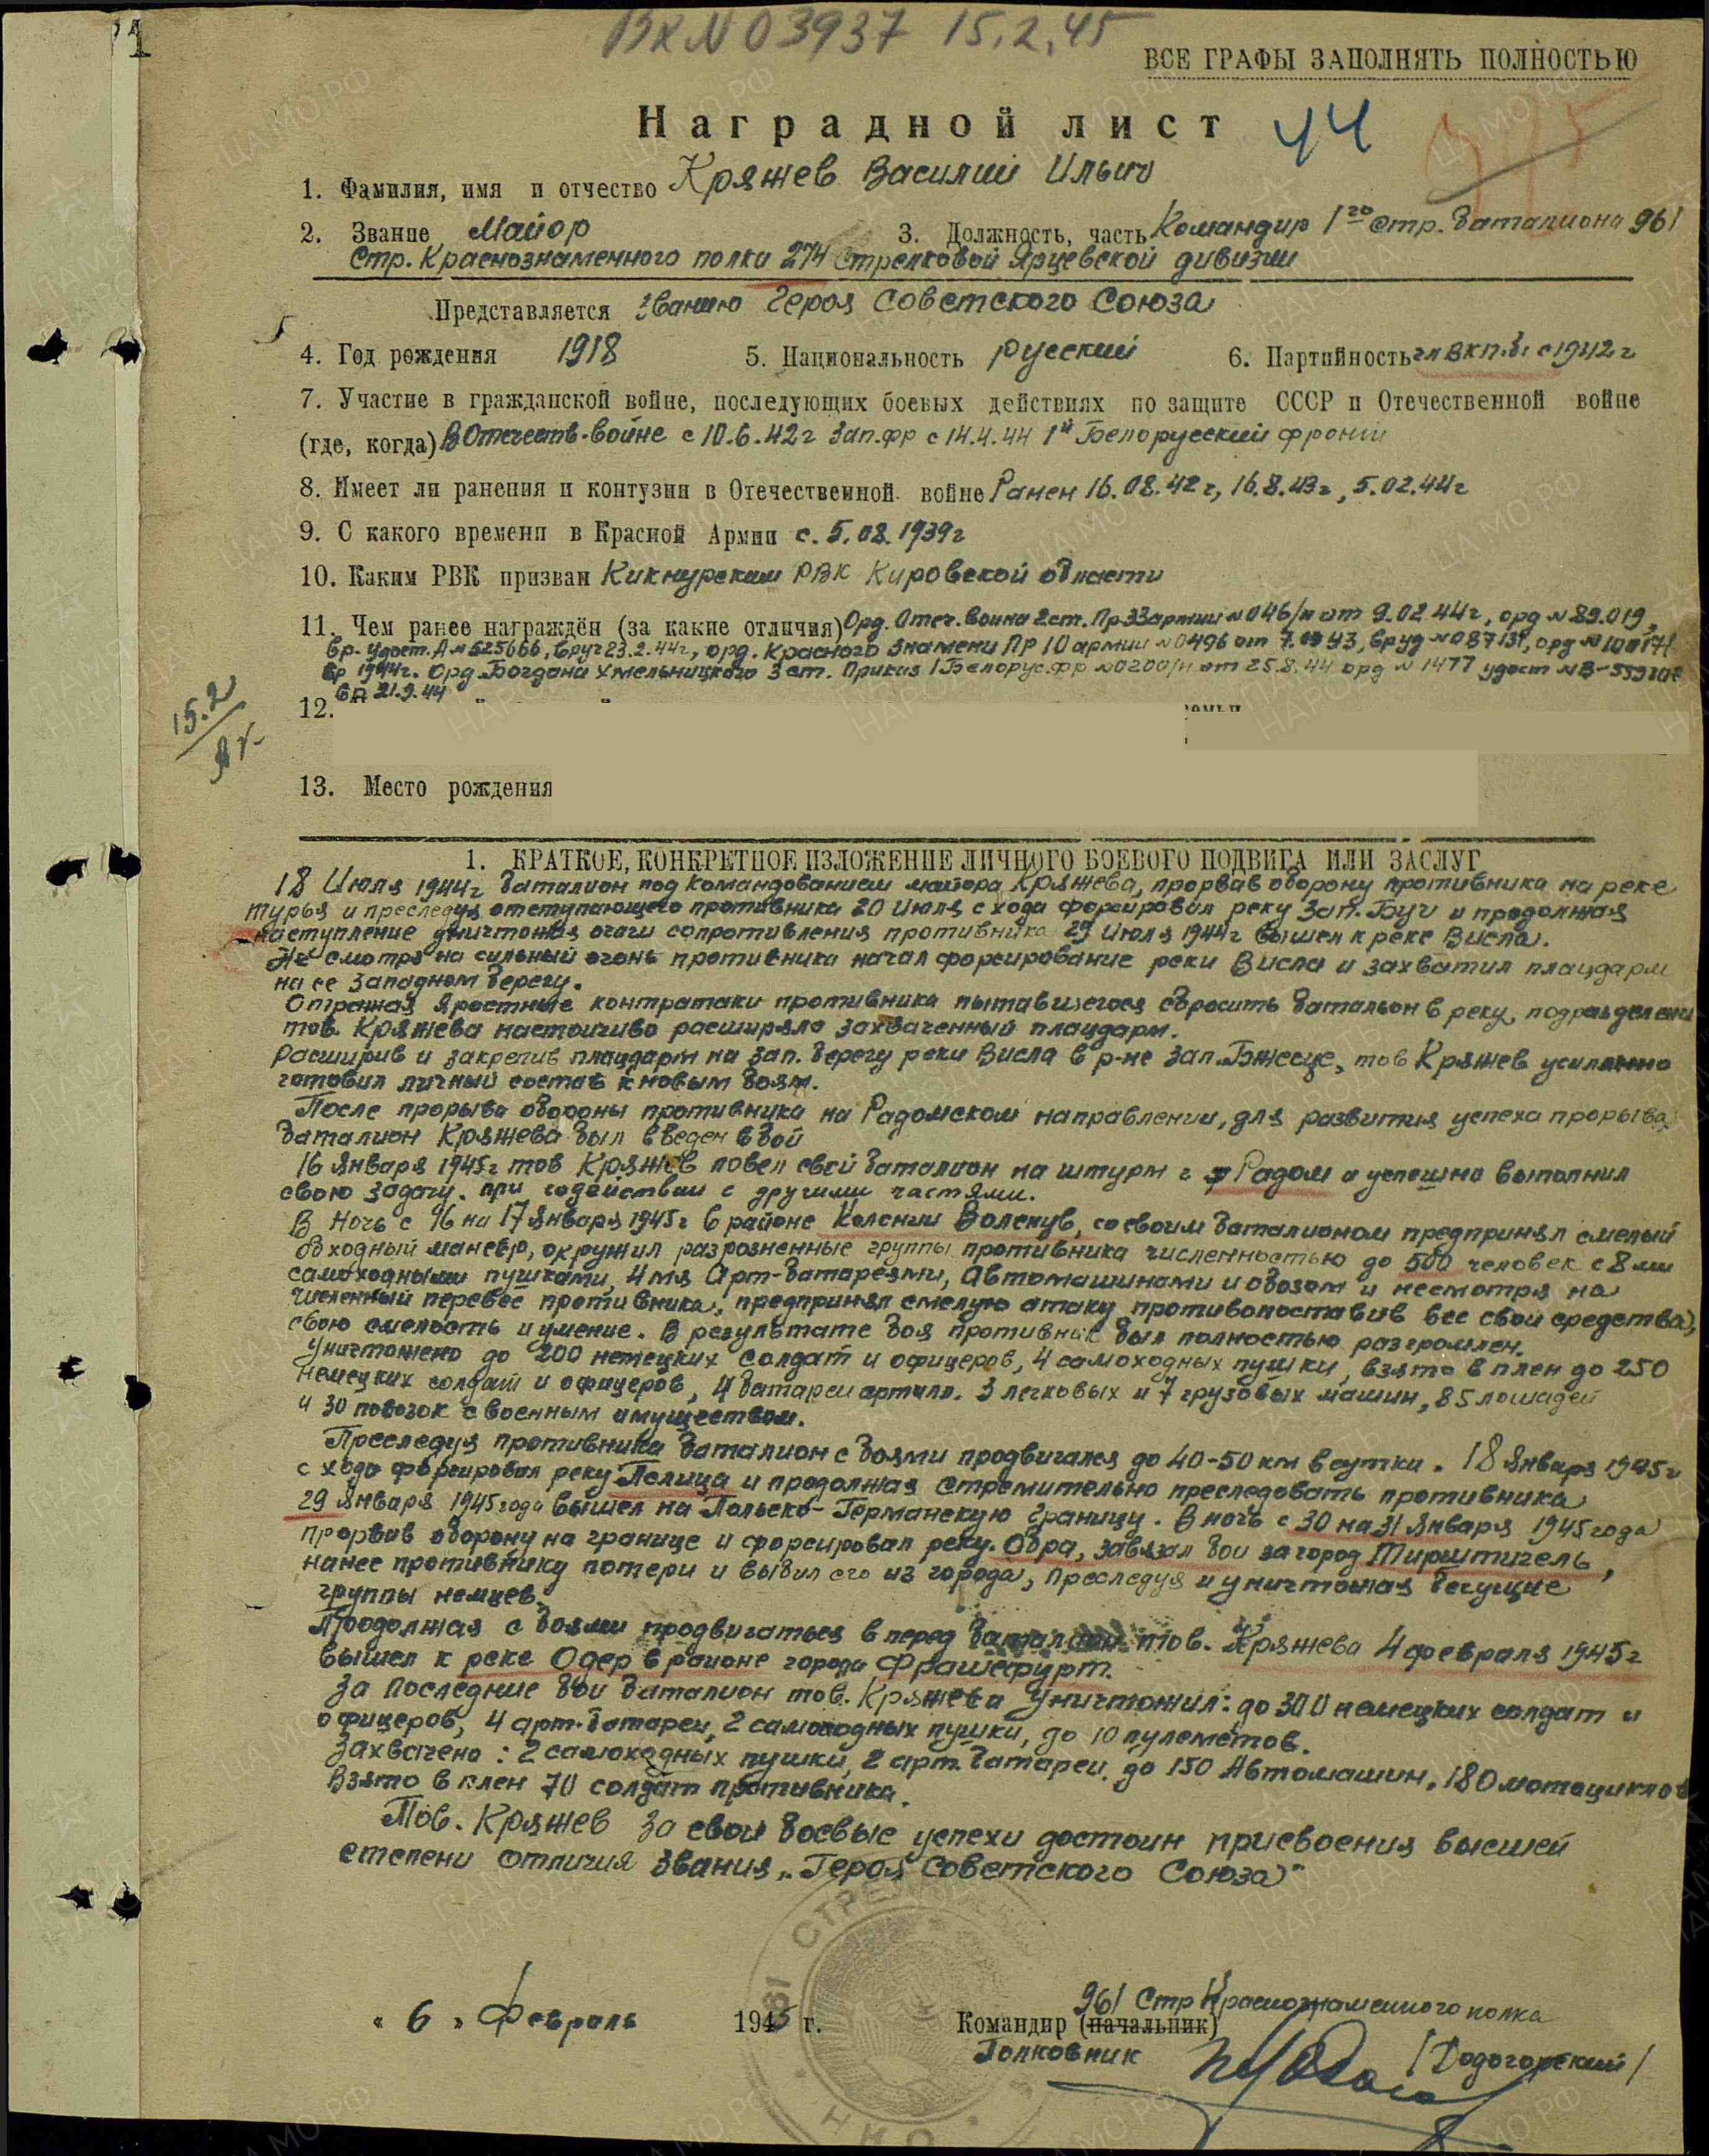 Вх N 03937 15.2.45
ВСЕ ГРАФЫ ЗАПОЛНЯТЬ ПОЛНОСТЬЮ
Наградной лист 44
1. Фамилия, имя и отчество Кряжев Василий Ильич
2. Звание Майор 3. Должность, часть Командир 1го Стр. баталиона 961
Стр. Краснознаменного полка 274 Стрелковой Ярцевской дивизии
Представляется званию Героя Советского Союза
4. Год рождения 1918 5. Национальность русский 6. Партийность чл ВКП.б. с 1942 г
7. Участие в гражданской войне, последующих боевых действиях по защите СССР и Отечественной войне
(где, когда) В Отечеств. войне с 10.6.42 г Зап. фр с 14.4.44 1й Белорусский фронт
8. Имеет ли ранения и контузии в Отечественной войне Ранен 16.08.42 г, 16.8.43 г, 5.02.44 г
9. С какого времени в Красной Армии с. 5.08.1939 г
10. Каким РВК призван Кикнурским РВК Кировской области
11. Чем ранее награждён (за какие отличия) Орд. Отеч. войны 2 ст. Пр. 33 армии N 046/н от 9.02.44 г, орд N 89.019,
вр. удост. А N 525666, вруч 23.2.44 г, орд. Красного Знамени Пр 10 армии N 0496 от 43, вр уд N 087134, орд N
вр 1944 г. Орд. Богдана Хмельницкого 3 ст. Приказ 1 Белорус. фр N 0200/н от 25.8.44 орд N 1477 удост N В-
вр 21.9.44
15.2
Вх
12.
13. Место рождения
1. КРАТКОЕ, КОНКРЕТНОЕ ИЗЛОЖЕНИЕ ЛИЧНОГО БОЕВОГО ПОДВИГА ИЛИ ЗАСЛУГ
18 Июля 1944 г баталион под командованием майора Кряжева, прорвав оборону противника на реке
Турья и преследуя отступающего противника 20 Июля с хода форсировал реку Зап. Буг и продолжая
наступление уничтожая очаги сопротивления противника 29 Июля 1944 г вышел к реке Висла.
Не смотря на сильный огонь противника начал форсирование реки Висла и захватил плацдарм
на ее западном берегу.
Отражая яростные контратаки противника пытавшегося сбросить батальон в реку, подразделени
тов. Кряжева настойчиво расширяло захваченный плацдарм.
Расширив и закрепив плацдарм на зап. берегу реки Висла в р-не зап. Бжесце, тов Кряжев усиленно
готовил личный состав к новым боям.
После прорыва обороны противника на Радомском направлении, для развития успеха прорыва
баталион Кряжева был введен в бой
16 Января 1945 г тов Кряжев повел свой баталион на штурм г Радом и успешно выполнил
свою задачу. при содействии с другими частями.
В Ночь с 16 на 17 Января 1945 г в районе Колении Воленув, со своим баталионом предпринял смелый
обходный маневр, окружил разрозненные группы противника численностью до 500 человек с 8 ми
самоходными пушками, 4 мя Арт-батареями, Автомашинами и обозом и несмотря на
численный перевес противника, предпринял смелую атаку противопоставив все свои средства,
свою смелость и умение. В результате боя противник был полностью разгромлен.
Уничтожено до 200 немецких солдат и офицеров, 4 самоходных пушки, взято в плен до 250
немецких солдат и офицеров, 4 батареи артилл. 3 легковых и 7 грузовых машин, 85 лошадей
и 30 повозок с военным имуществом.
Преследуя противника баталион с боями продвигался до 40-50 км в сутки. 18 Января 1945 г
с хода форсировал реку Пелица и продолжая стремительно преследовать противника
29 Января 1945 года вышел на Польско-Германскую границу. В ночь с 30 на 31 Января 1945 года
прорвав оборону на границе и форсировал реку. Обра, завязал бои за город Тирштигель,
нанес противнику потери и выбил его из города, преследуя и уничтожая бегущие
группы немцев.
Продолжая с боями продвигаться вперед баталион тов. Кряжева 4 февраля 1945 г
вышел к реке Одер в районе города
За последние бои баталион тов. Кряжева уничтожил: до 300 немецких солдат и
офицеров, 4 арт. батареи, 2 самоходных пушки, до 10 пулеметов.
Захвачено: 2 самоходных пушки, 2 арт. батареи, до 150 Автомашин, 180 мотоциклов
Взято в плен 70 солдат противника.
Тов. Кряжев за свои боевые успехи достоин присвоения высшей
степени отличия звания „Героя Советского Союза"
961 Стр Краснознаменного полка
« 6 » Февраль 1945 г. Командир (начальник)
Полковник /Додогорский/
961 СТРЕЛ
НКО